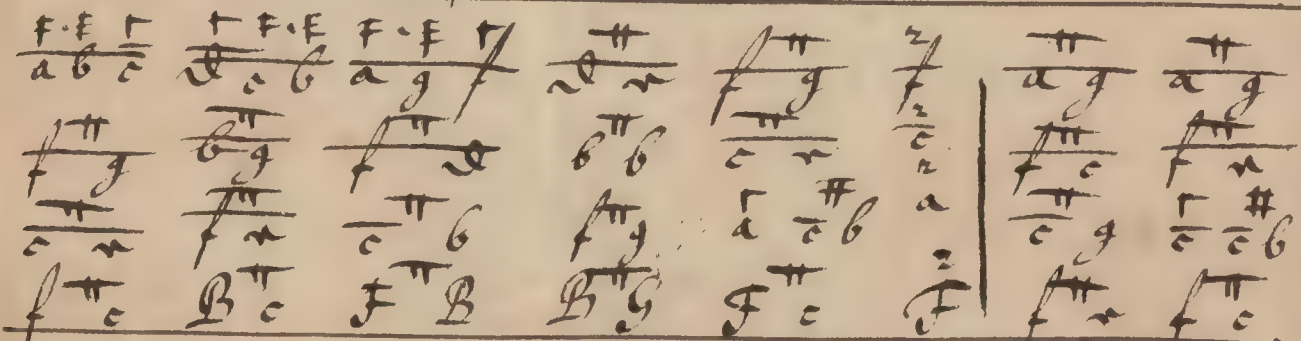 a b c̄ d c b a g f d e f g f a g a g
f g b g f d b b c̄ e c̄ f c f e
c e f e c̄ b f g a c̄ b a c̄ g c̄ c̄ b
f c B c F B B G F c F f e f c